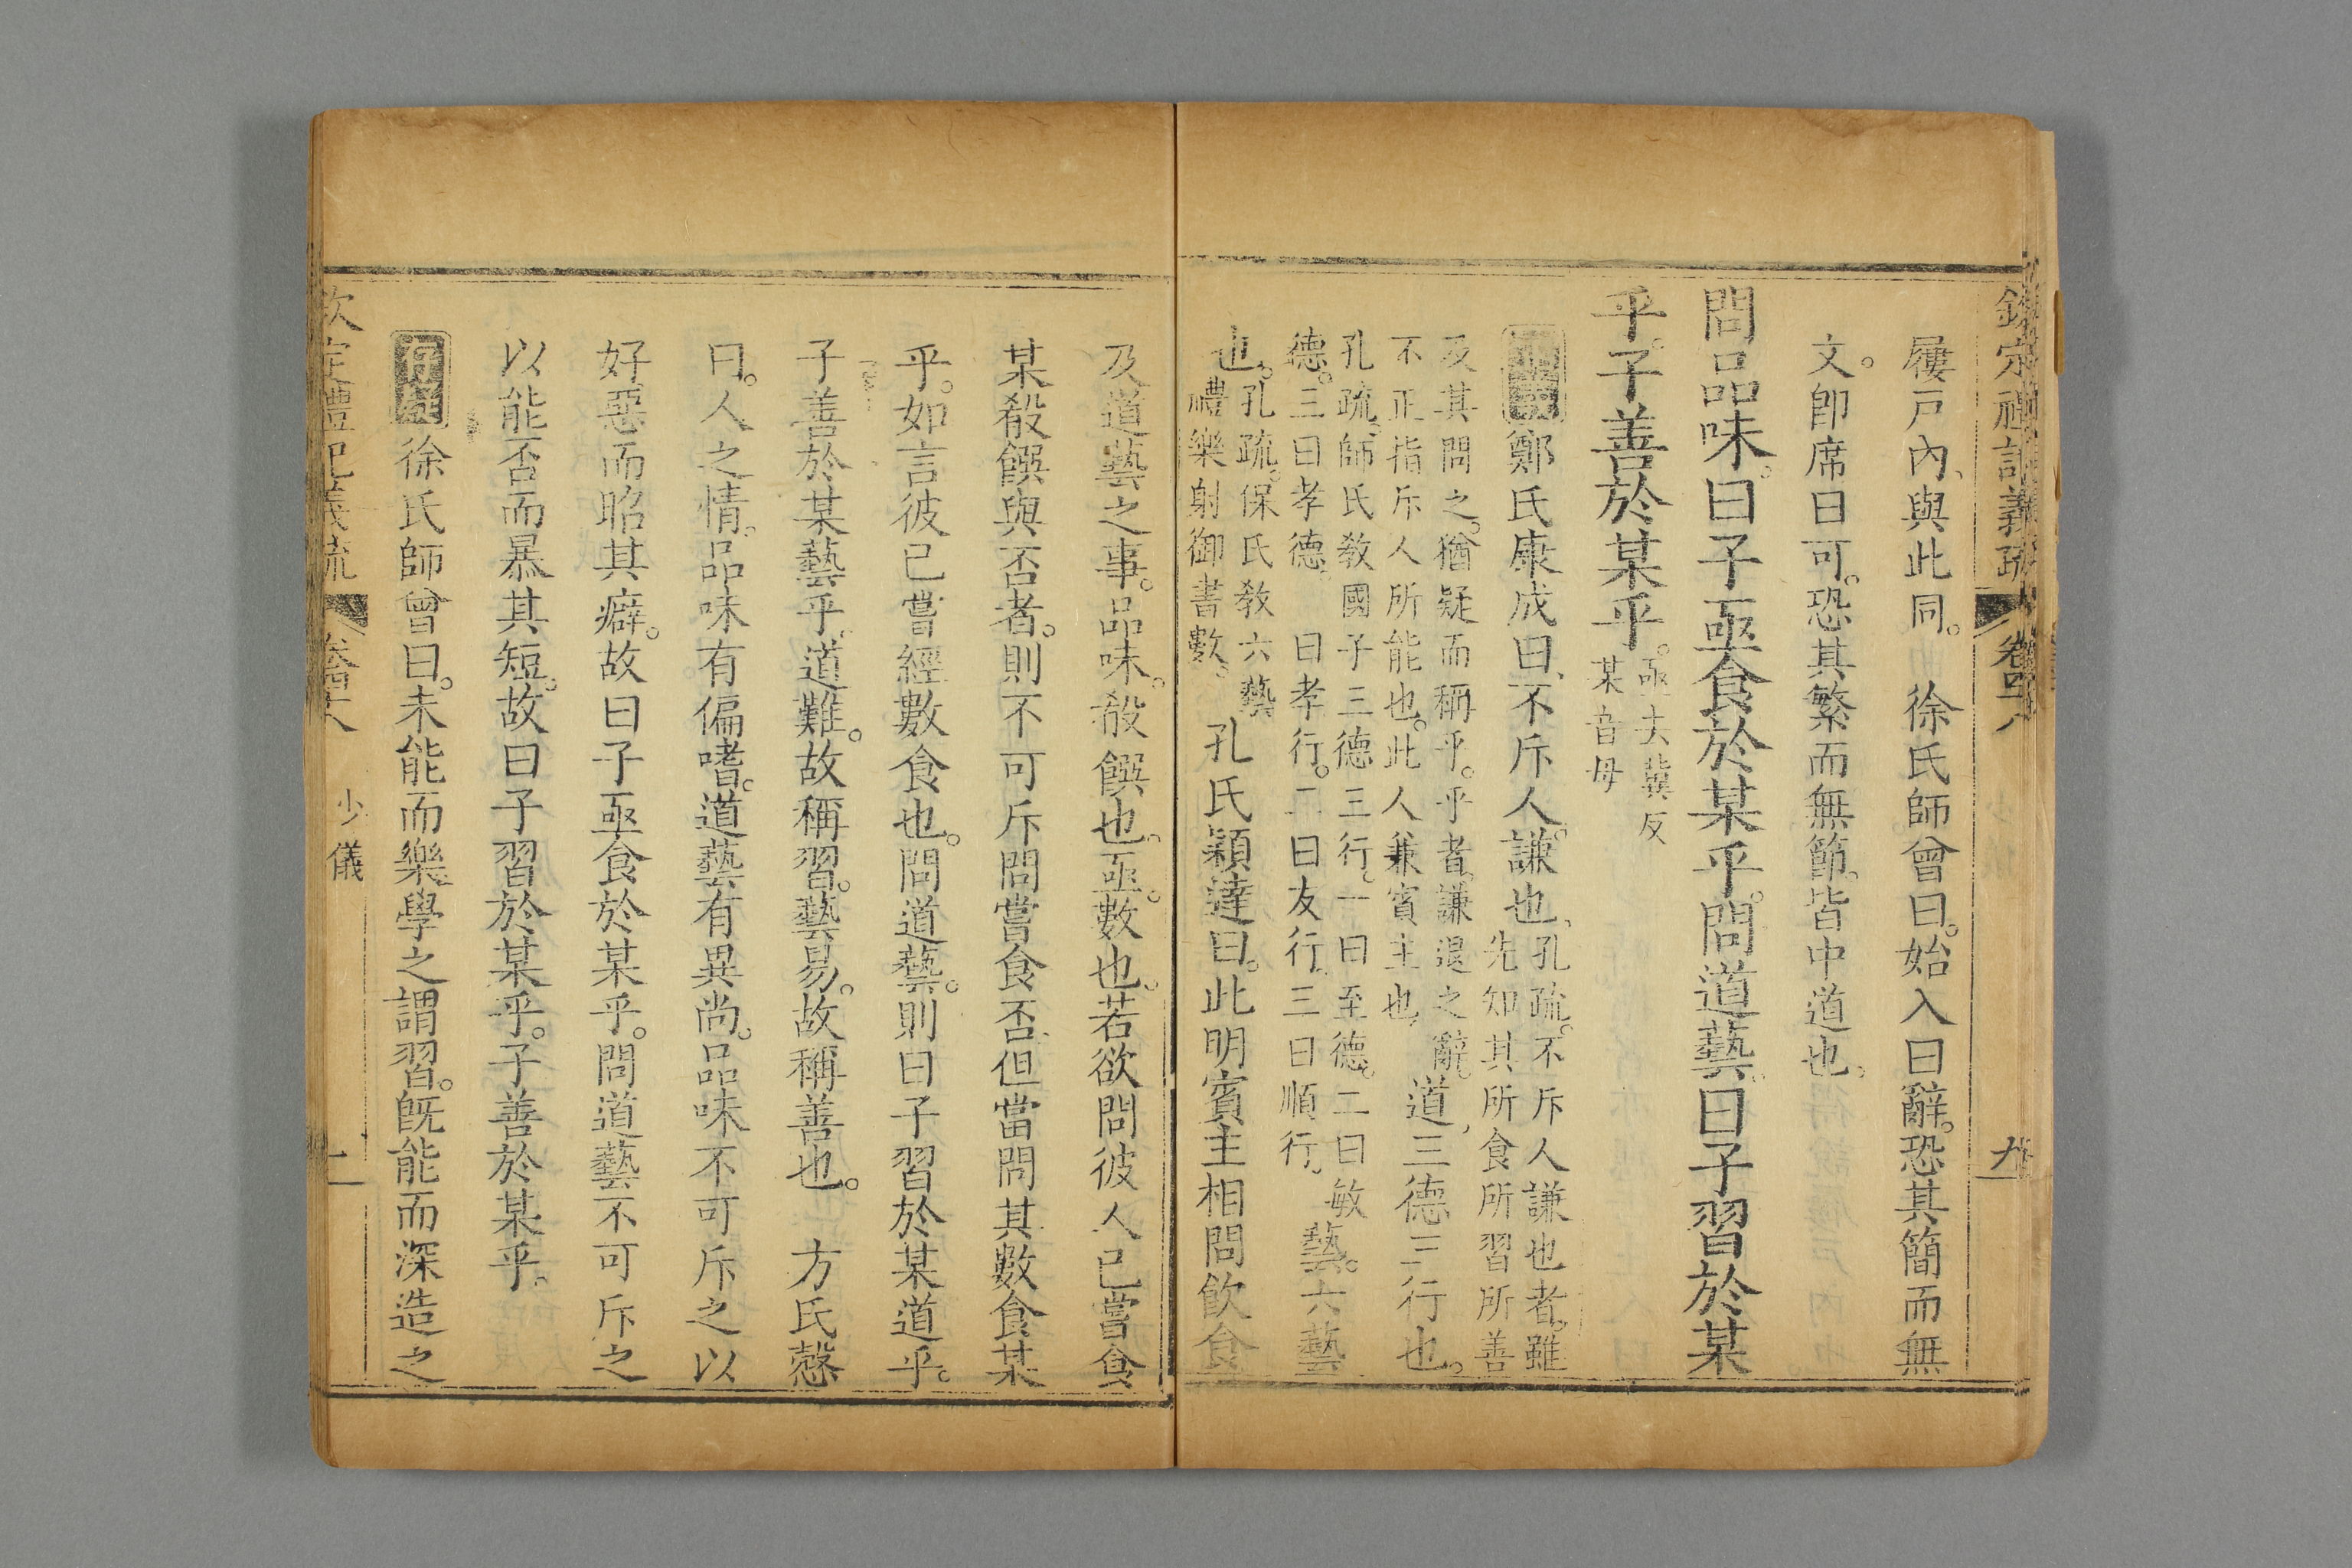 屨戸內與此同。 徐氏師曾曰。始入曰辭。恐其簡而無
文。卽席曰可。恐其繁而無節。皆中道也。
問品味。曰子亟食於某乎。問道藝。曰子習於某
乎。子善於某乎。亟去冀反
某音母
鄭氏康成曰、不斥人。謙也、孔疏。不斥人謙也者。雖
先知其所食所習所善
及其問之。猶疑而稱乎。乎者。謙退之辭。
不正指斥人所能也。此人兼賓主也。道、三德三行也。
孔疏。師氏教國子三德三行。一曰至德。二曰敏
德。三曰孝德。一曰孝行。二曰友行。三曰順行。藝。六藝
也。孔疏。保氏教六藝
禮樂射御書數。 孔氏穎達曰。此明賓主相問飮食
及道藝之事。品味。殽饌也。亟。數也。若欲問彼人已嘗食
某殽饌與否者。則不可斥問嘗食否。但當問其數食某
乎。如言彼已嘗經數食也。問道藝。則曰子習於某道乎。
子善於某藝乎。道難。故稱習。藝易。故稱善也。 方氏慤
曰。人之情。品味有偏嗜。道藝有異尚。品味不可斥之以
好惡而昭其癖。故曰子亟食於某乎。問道藝不可斥之
以能否而暴其短。故曰子習於某乎。子善於某乎。
徐氏師曾曰。未能而樂學之謂習。旣能而深造之
欽定禮記義疏 卷四十八 少儀 二